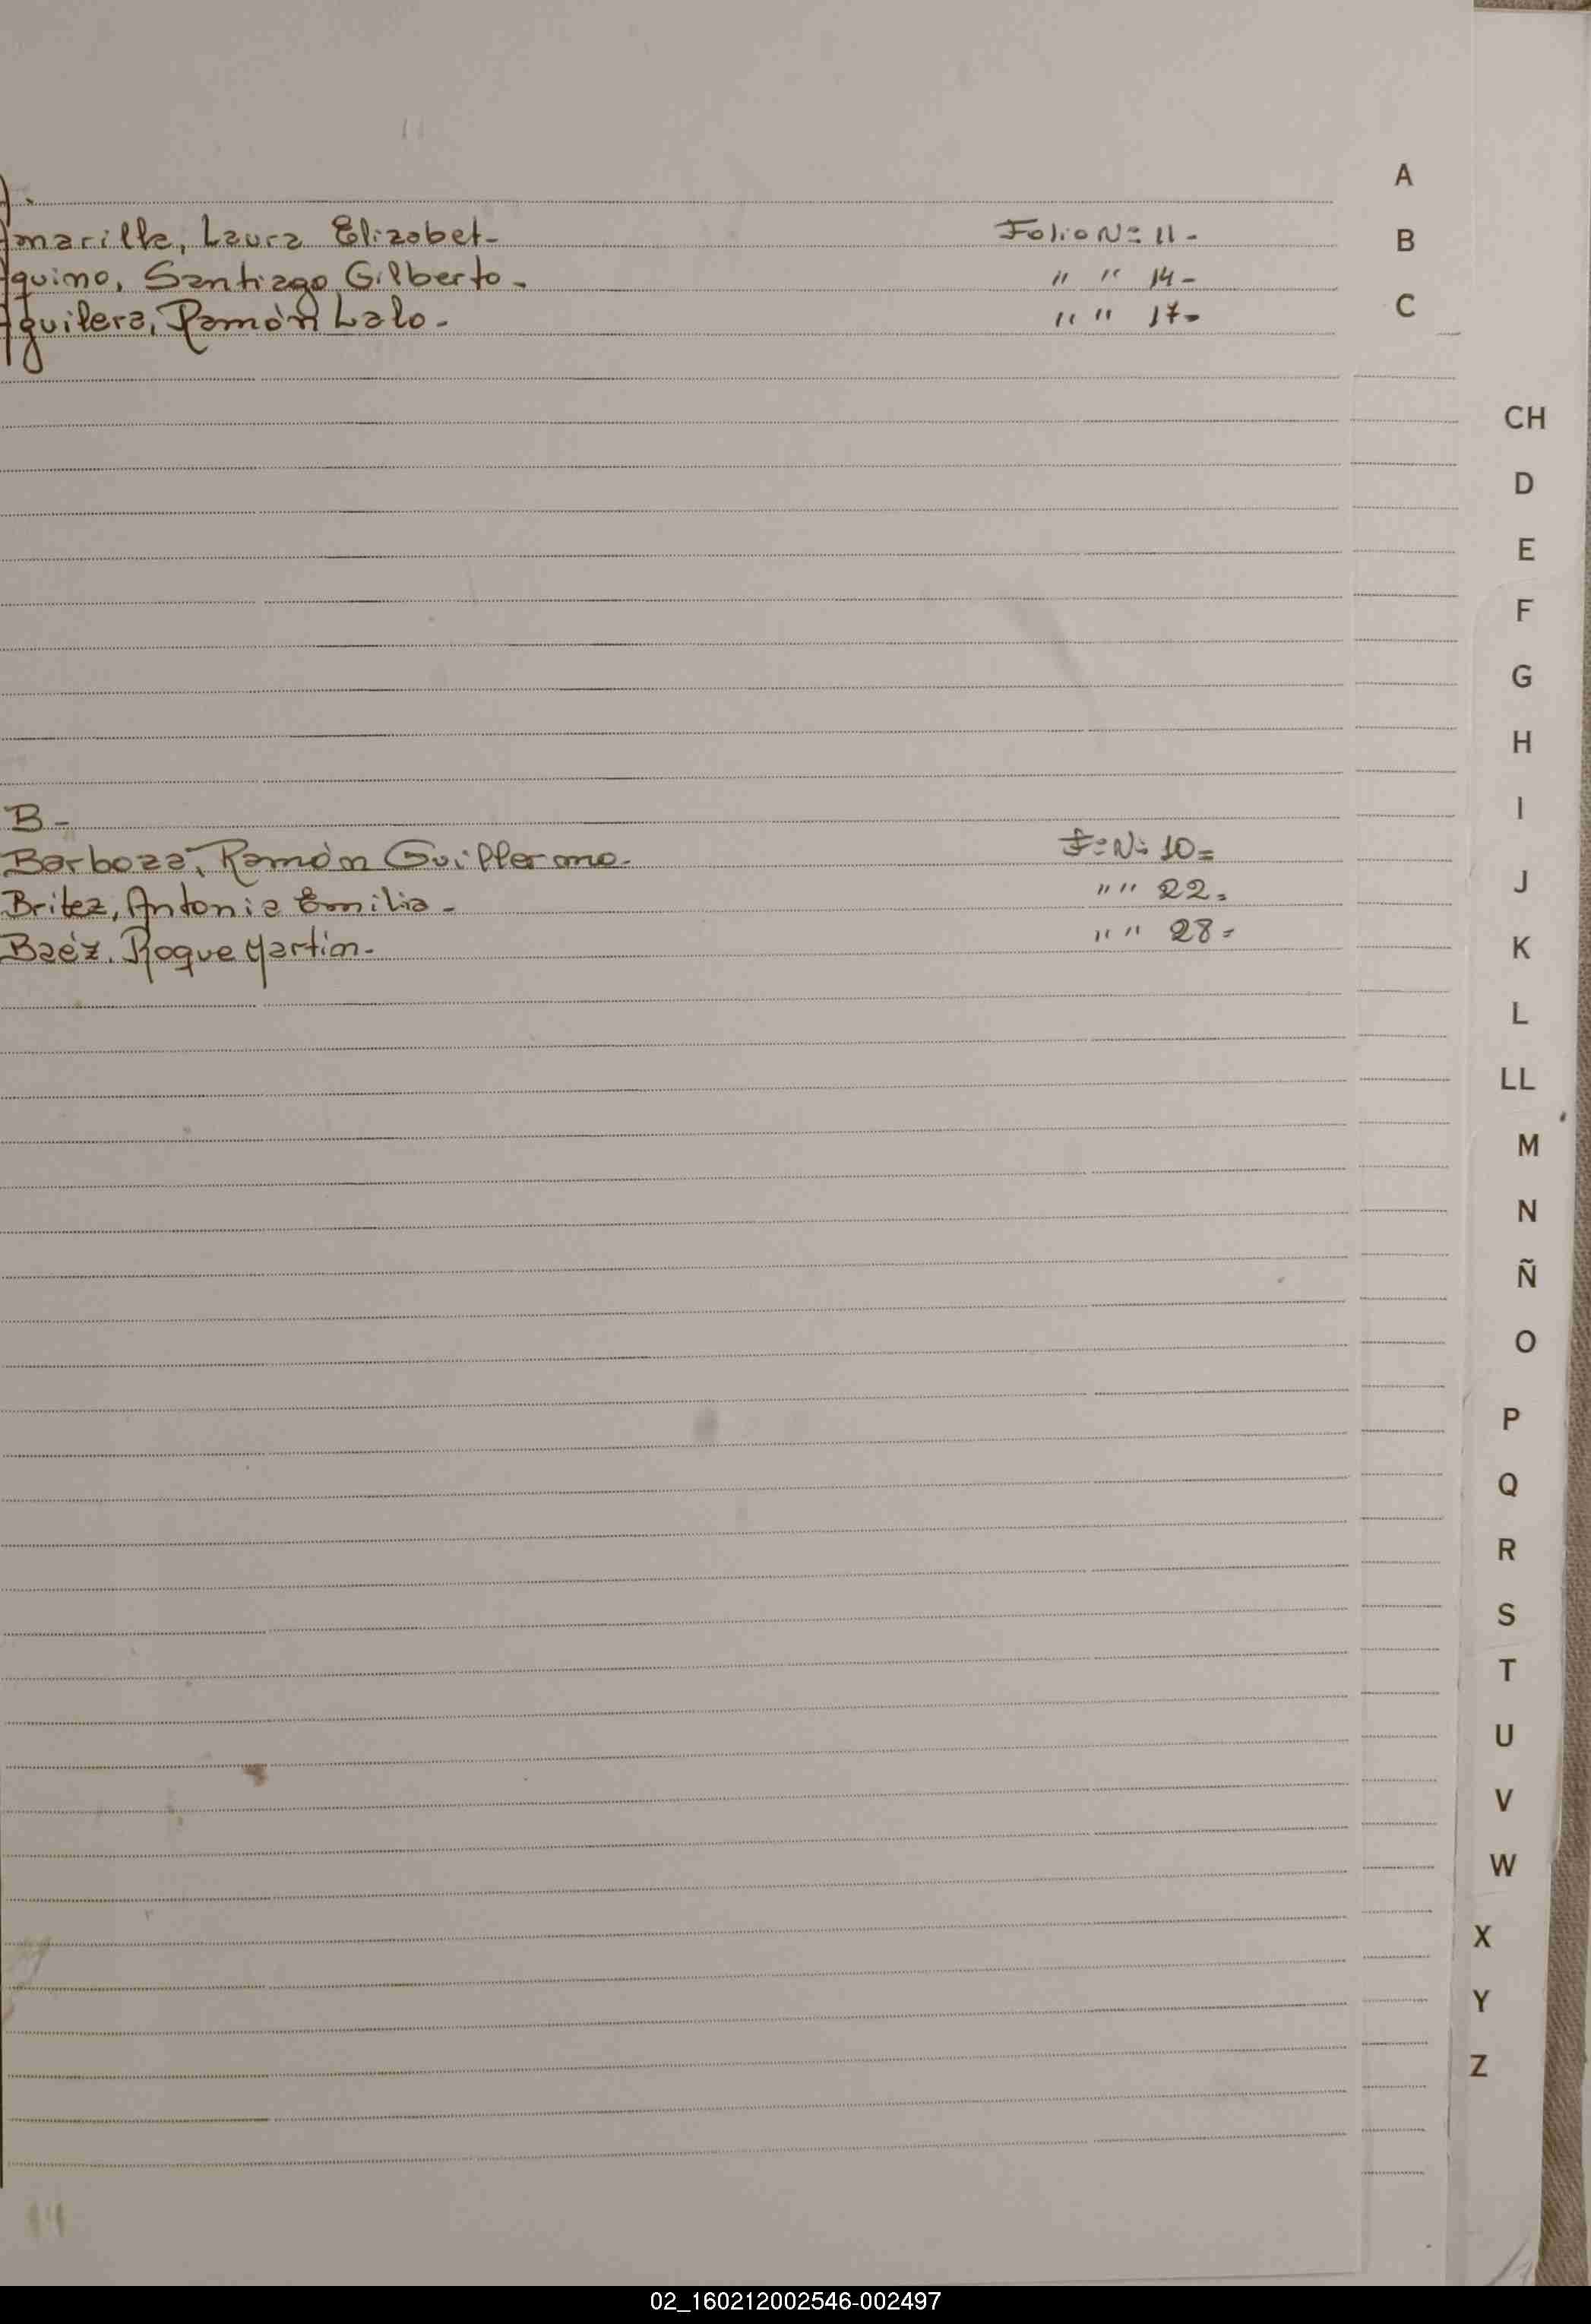 A.-
Amarilla, Laura Elizabet- Folio Nº 11-
Aquino, Santiago Gilberto- " " 14-
Aguilera, Ramón Lalo- " " 17-
B-
Barboza, Ramón Guillermo- Fº Nº 10=
Britez, Antonia Emilia- " " 22=
Baéz, Roque Martin- " " 28=
A
B
C
CH
D
E
F
G
H
I
J
K
L
LL
M
N
Ñ
O
P
Q
R
S
T
U
V
W
X
Y
Z
02_160212002546-002497